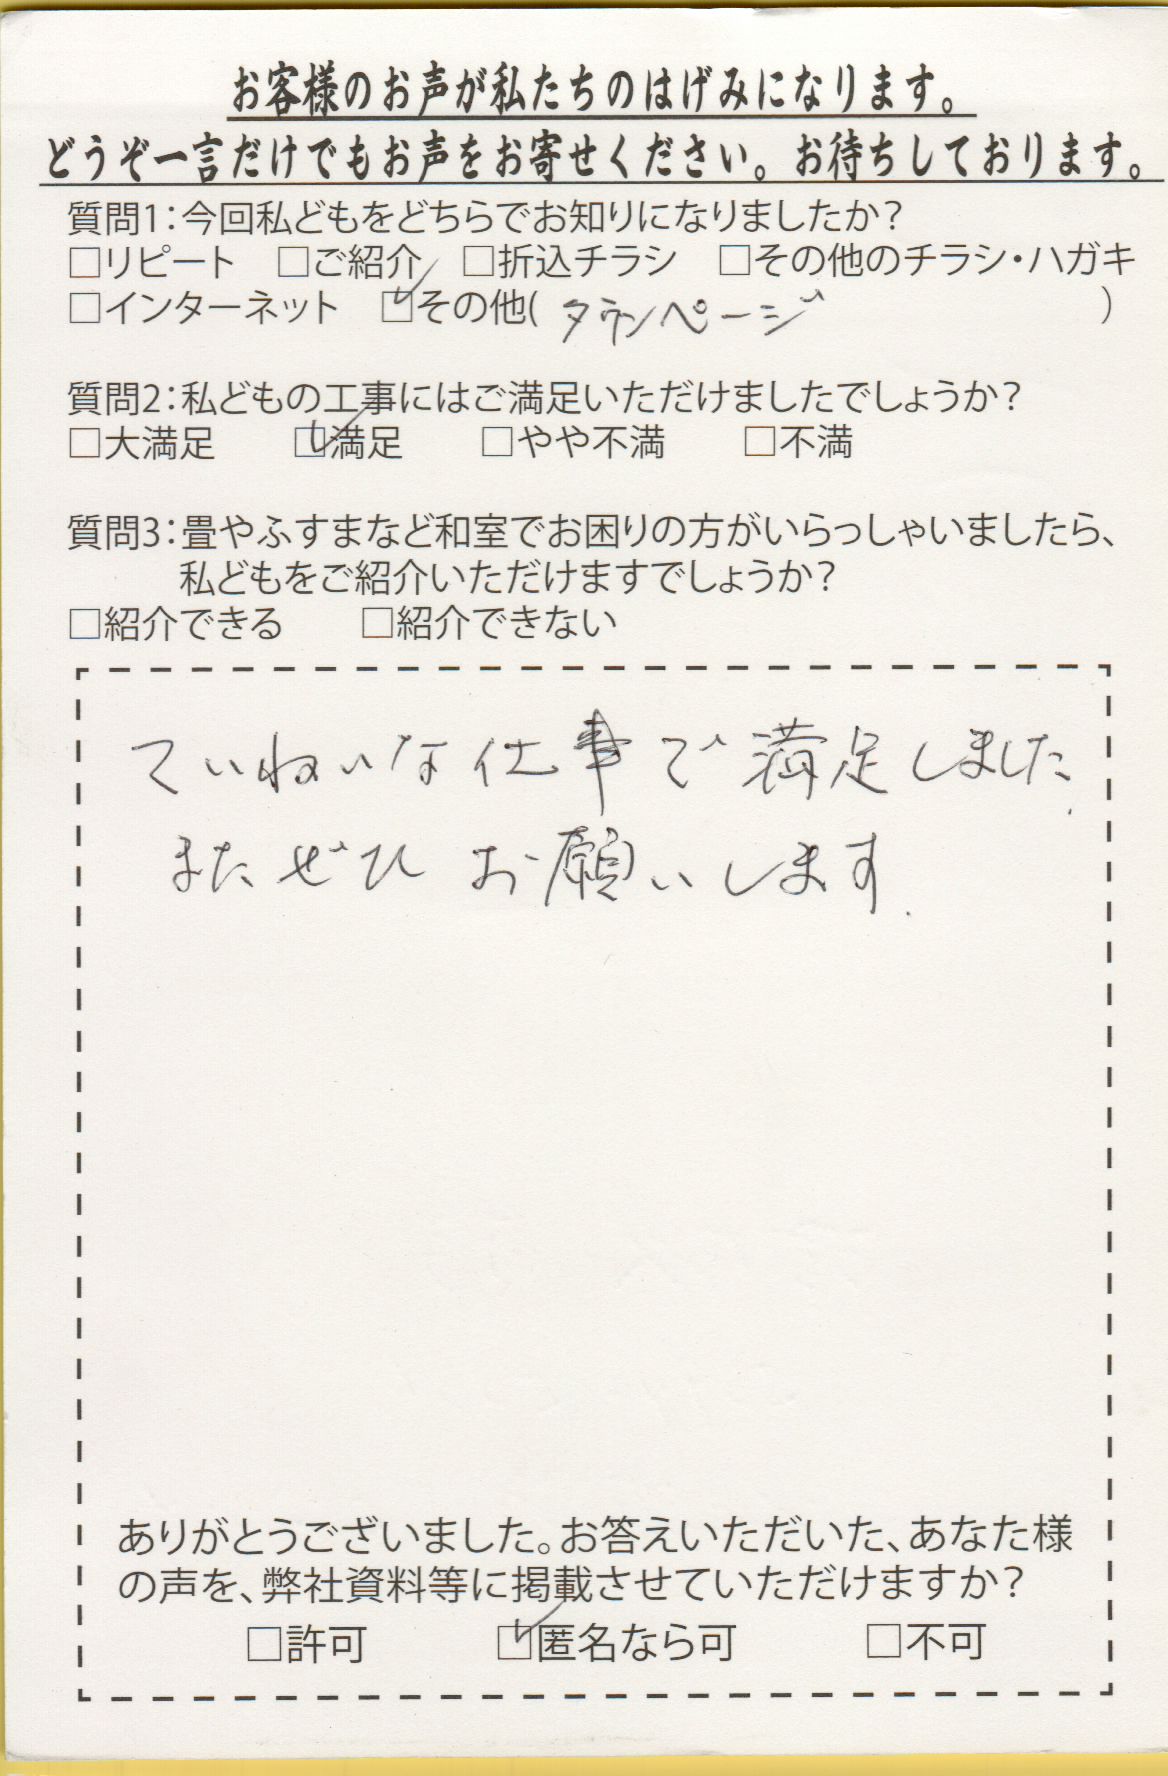 お客様のお声が私たちのはげみになります。
どうぞ一言だけでもお声をお寄せください。お待ちしております。
質問1：今回私どもをどちらでお知りになりましたか？
□リピート　□ご紹介　□折込チラシ　□その他のチラシ・ハガキ
□インターネット　☑その他(タウンページ)
質問2：私どもの工事にはご満足いただけましたでしょうか？
□大満足　☑満足　□やや不満　□不満
質問3：畳やふすまなど和室でお困りの方がいらっしゃいましたら、
私どもをご紹介いただけますでしょうか？
□紹介できる　□紹介できない
ていねいな仕事で満足しました.
またぜひお願いします.
ありがとうございました。お答えいただいた、あなた様
の声を、弊社資料等に掲載させていただけますか？
□許可　☑匿名なら可　□不可